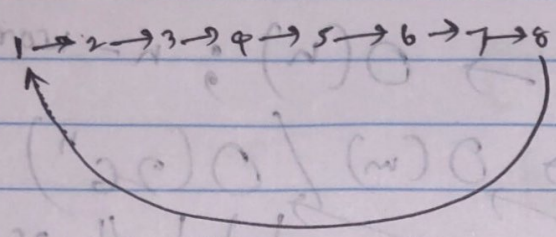 1 → 2 → 3 → 4 → 5 → 6 → 7 → 8